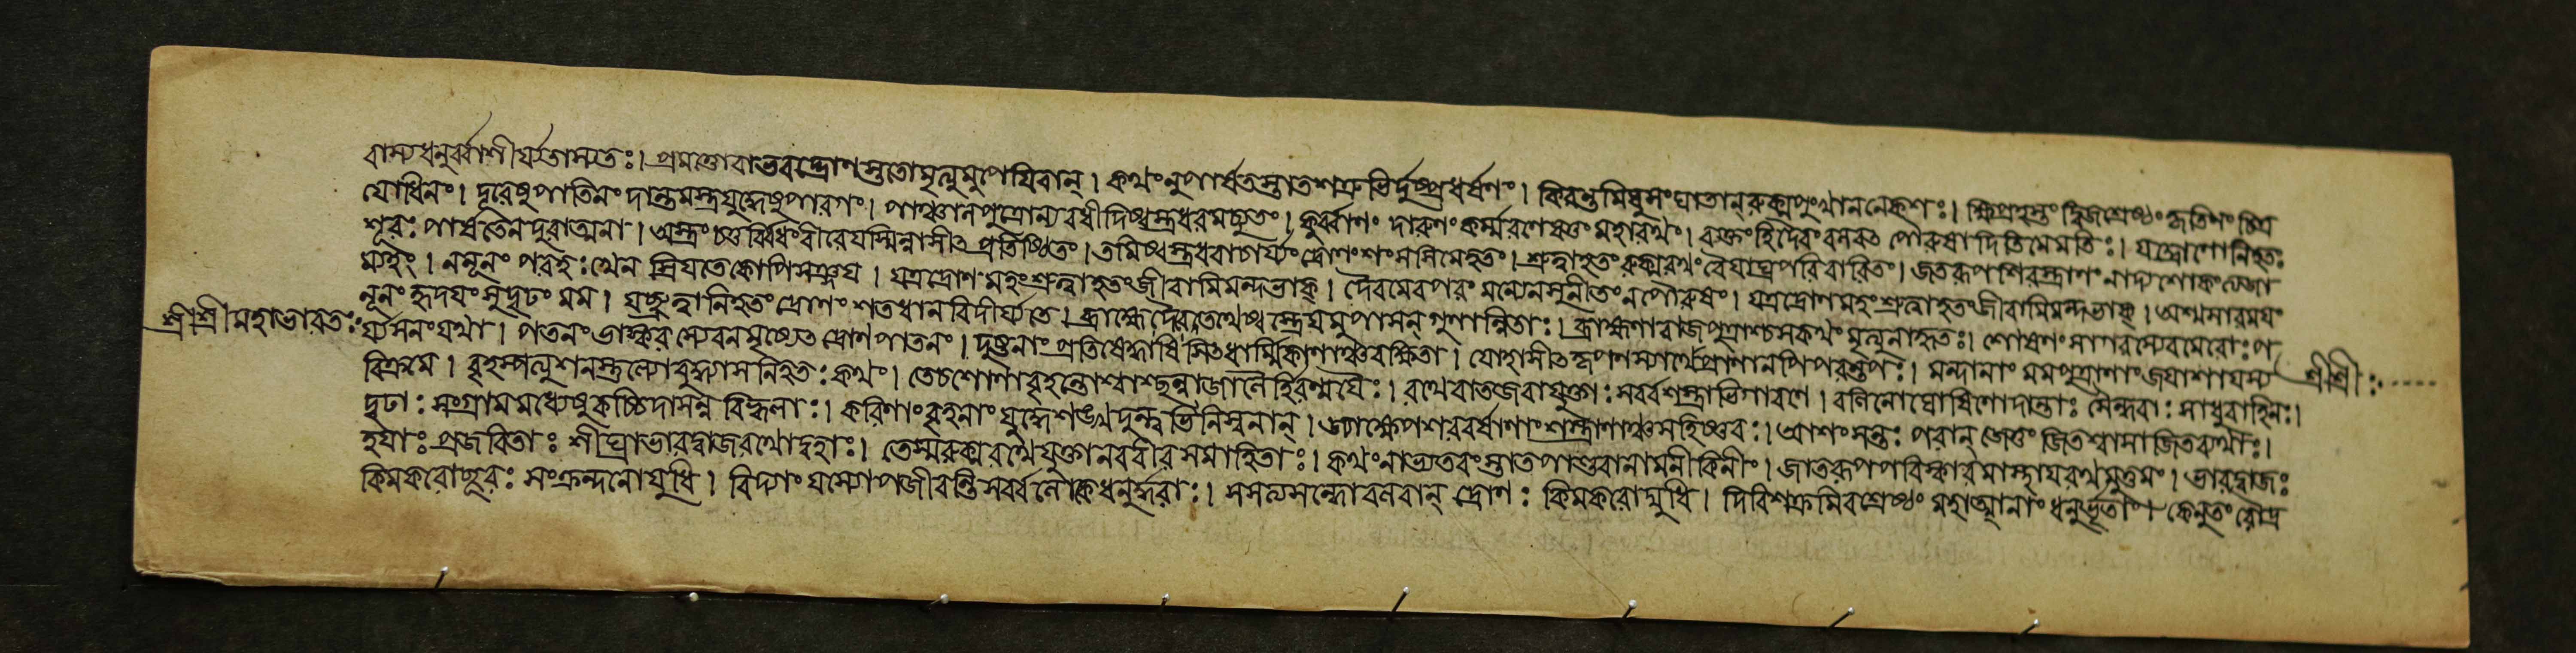 বাস্যধনুর্ব্বাশীর্য্যতাস্যতঃ। প্রমত্তোবাভবদ্দ্রোণস্ততোমৃত্যুমুপেযিবান্। কথংনুপার্ষতস্তাতশত্রুভির্দুষ্প্রধর্ষণং। কিরন্তমিষুসংঘাতান্রুক্মপুংখাননেকশঃ। ক্ষিপ্রহস্তং দ্বিজশ্রেষ্ঠং কৃতিনং চিত্র
যোধিনং। দূরেষুপাতিনং দান্তমস্ত্রযুদ্ধেষুপারগং। পাঞ্চালপুত্রোন্যবধীদ্দিব্যাস্ত্রধরমচ্যুতং। কুর্ব্বাণং দারুণং কর্ম্মরণেযত্তং মহারথং। ব্যক্তংহিদৈবং বলবৎ পৌরুষাদিতিমেমতিঃ। যদ্দ্রোণোনিহতঃ
শূরঃ পার্ষতেনদুরাত্মনা। অস্ত্রং চতুর্ব্বিধং বীরেযস্মিন্নাসীৎ প্রতিষ্ঠিতং। তমিষ্বস্ত্রধরাচার্য্যং দ্রোণং শংসসিমেহতং। শ্রুত্বাহতং রুক্মরথং বৈযাঘ্রপরিবারিতং। জাতরূপশিরস্ত্রাণং নাদ্যশোকং
ম্যহং। ননূনং পরদুঃখেন ম্রিযতেকোপিসঞ্জয। যত্রদ্রোণমহংশ্রুত্বাহতংজীবামিমন্দভাক্। দৈবমেবপরং মন্যেনসুনীতংনপৌরুষং। যত্রদ্রোণমহংশ্রুত্বাহতংজীবামিমন্দভাক্। অশ্মসারমযং
নূনং হৃদযং সুদৃঢং মম। যচ্ছ্রুত্বানিহতং দ্রোণং শতধানবিদীর্য্যতে। ব্রাহ্মেদৈবেতথেষ্বস্ত্রেযমুপাসন্ গুণান্বিতাঃ। ব্রাহ্মণারাজপুত্রাশ্চসকথং মৃত্যুনাহৃতঃ। শোষণং সাগরস্যেবমেরোঃপ
শ্রীশ্রীমহাভারতঃ র্য্যসনংযথা। পতনং ভাস্করস্যেবনমৃষ্যেত দ্রোণপাতনং। দুষ্টানাং প্রতিষেদ্ধাধার্ম্মিকাণাঞ্চরক্ষিতা। যোহাসীৎকৃপণস্যার্থেপ্রাণানপিপরন্তপঃ। মন্দানাং মমপুত্রাণাং জযাশাযস্য শ্রীশ্রীঃ
বিক্রমে। বৃহস্পত্যুশনস্তুল্যোবুদ্ধ্যাসনিহতঃ কথং। তেচশোণাবৃহন্তোশ্বাশ্ছন্নাজালৈর্হিরণ্মযৈঃ। রথেবাতজবাযুক্তাঃ সর্ব্বশস্ত্রাতিগারণে। বলিনোঘোষিণোদান্তাঃ সৈন্ধবাঃ সাধুবাহিনঃ।
দৃঢাঃ সংগ্রামমধ্যেষুকচ্চিদাসন্ন বিহ্বলাঃ। করিণাং বৃংহতাং যুদ্ধেশঙ্খদুন্দুভিনিস্বনান্। জ্যাক্ষেপশরবর্ষাণাং শস্ত্রাণাঞ্চসহিষ্ণবঃ। আশংসন্তঃ পরান্ জেতুং জিতশ্বাসাজিতব্যথাঃ।
হযাঃ প্রজবিতাঃ শীঘ্রাভারদ্বাজরথোদ্বহাঃ। তেস্মরুক্মরথেযুক্তানরবীরসমাহিতাঃ। কথংনাভ্যতরংস্তাতপাণ্ডবানামনীকিনীং। জাতরূপপরিষ্কারমাস্থাযরথমুত্তমং। ভারদ্বাজঃ
কিমকরোচ্ছূরঃ সংক্রন্দনোযুধি। বিদ্যাং যস্যোপজীবন্তিসর্ব্বলোকেধনুর্দ্ধরাঃ। সসত্যসন্ধোবলবান্ দ্রোণঃ কিমকরোদ্যুধি। দিবিশক্রমিবশ্রেষ্ঠং মহামাত্রং ধনুর্ভৃতাং। কেনুতং রৌদ্র